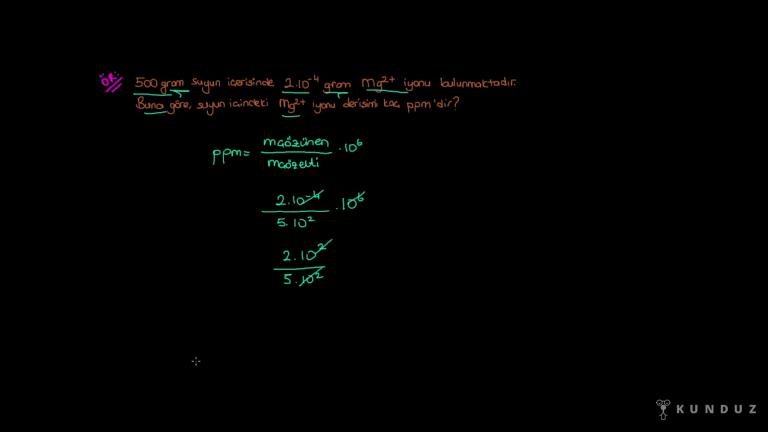 ÖR:
500 gram suyun içerisinde 2.10⁻⁴ gram Mg²⁺ iyonu bulunmaktadır.
Buna göre, suyun içindeki Mg²⁺ iyonu derişimi kaç ppm'dir?
ppm = mçözünen / mçözelti . 10⁶
2.10⁻⁴ / 5.10² . 10⁶
2.10² / 5.10²
KUNDUZ